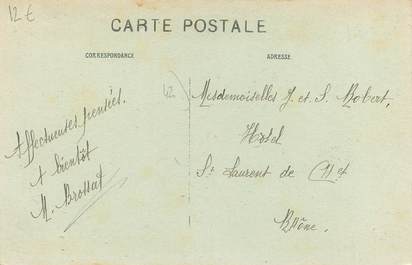 12 €
CARTE POSTALE
CORRESPONDANCE
ADRESSE
Affectueuses pensées.
A bientôt
M. Brossat
Mesdemoiselles J. et S. Robert,
Hotel
St Laurent de
Rhône.